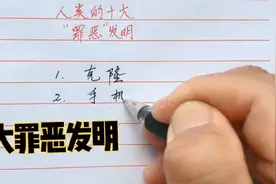 人类的十大
“罪恶”发明
1. 克隆
2. 手机
大罪恶发明